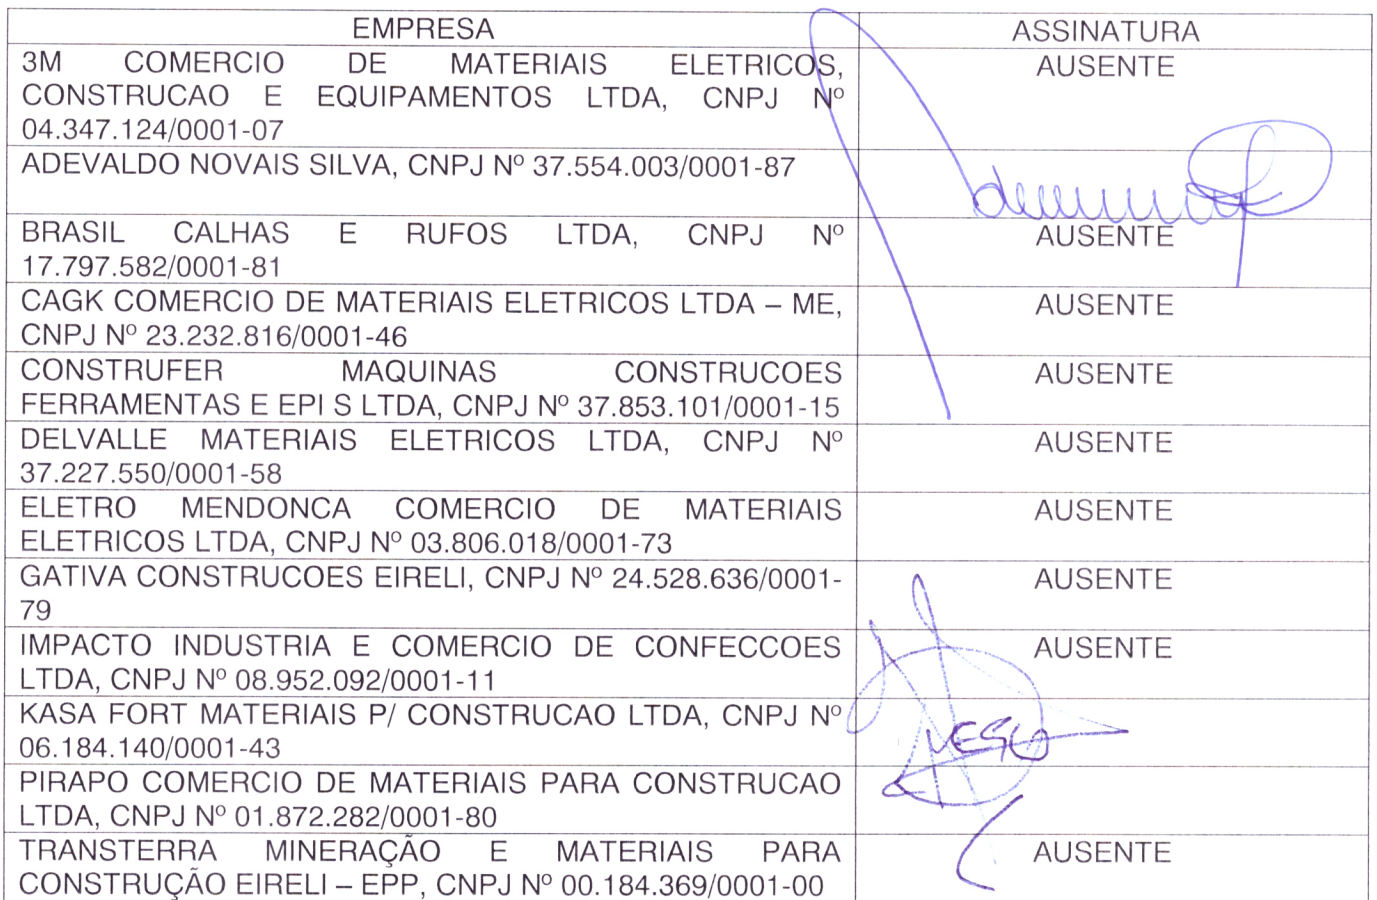 EMPRESA
ASSINATURA
3M COMERCIO DE MATERIAIS ELETRICOS,
CONSTRUCAO E EQUIPAMENTOS LTDA, CNPJ Nº
04.347.124/0001-07
AUSENTE
ADEVALDO NOVAIS SILVA, CNPJ Nº 37.554.003/0001-87
BRASIL CALHAS E RUFOS LTDA, CNPJ Nº
17.797.582/0001-81
AUSENTE
CAGK COMERCIO DE MATERIAIS ELETRICOS LTDA – ME,
CNPJ Nº 23.232.816/0001-46
AUSENTE
CONSTRUFER MAQUINAS CONSTRUCOES
FERRAMENTAS E EPI S LTDA, CNPJ Nº 37.853.101/0001-15
AUSENTE
DELVALLE MATERIAIS ELETRICOS LTDA, CNPJ Nº
37.227.550/0001-58
AUSENTE
ELETRO MENDONCA COMERCIO DE MATERIAIS
ELETRICOS LTDA, CNPJ Nº 03.806.018/0001-73
AUSENTE
GATIVA CONSTRUCOES EIRELI, CNPJ Nº 24.528.636/0001-
79
AUSENTE
IMPACTO INDUSTRIA E COMERCIO DE CONFECCOES
LTDA, CNPJ Nº 08.952.092/0001-11
AUSENTE
KASA FORT MATERIAIS P/ CONSTRUCAO LTDA, CNPJ Nº
06.184.140/0001-43
PIRAPO COMERCIO DE MATERIAIS PARA CONSTRUCAO
LTDA, CNPJ Nº 01.872.282/0001-80
TRANSTERRA MINERAÇÃO E MATERIAIS PARA
CONSTRUÇÃO EIRELI – EPP, CNPJ Nº 00.184.369/0001-00
AUSENTE